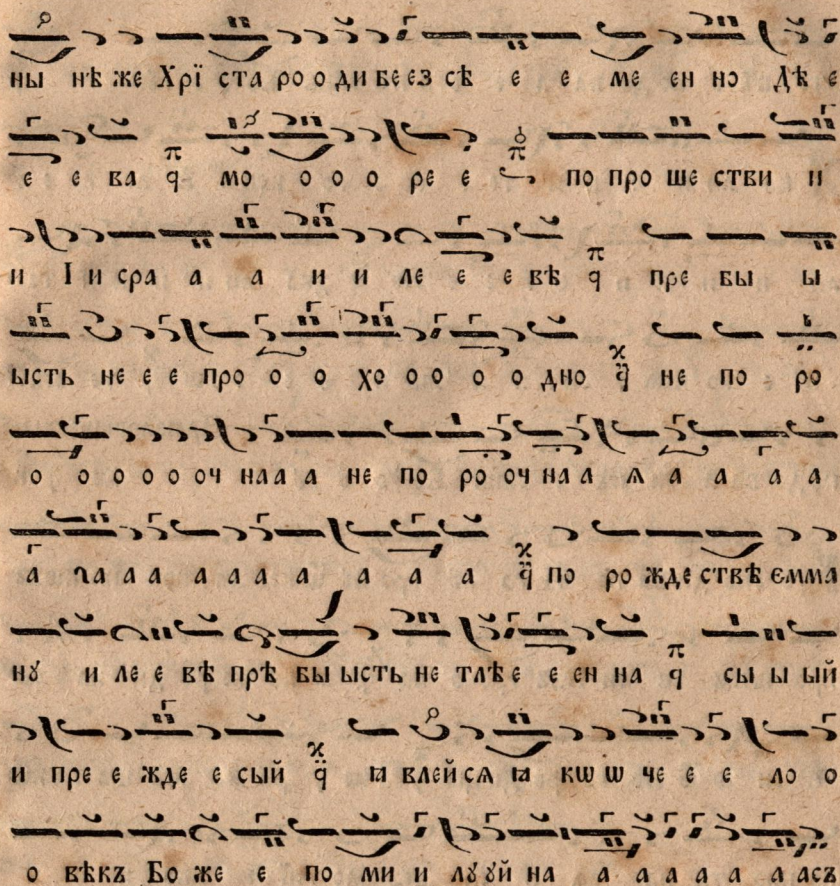 ны нѣ же Хрї ста ро о ди бе ез сѣ е е ме ен но Дѣ е
е е ва мо о о о ре е по про ше стви и
и І и сра а а и и ле е е вѣ пре бы ы
ысть не е е про о о хо о о о о дно не по ро
о о о о о оч наа а не по ро оч на а ѧ а а а а
а ꙗа а а а а а а а а а по ро жде ствѣ Емма
нꙋ и ле е вѣ прѣ бы ысть не тлѣ е е ен на сы ы ый
и пре е жде е сый ꙗ влей сѧ ꙗ кѡ ѡ че е е ло о
о вѣкъ Бо же е по ми и лꙋ ꙋй на а а а а а а асъ